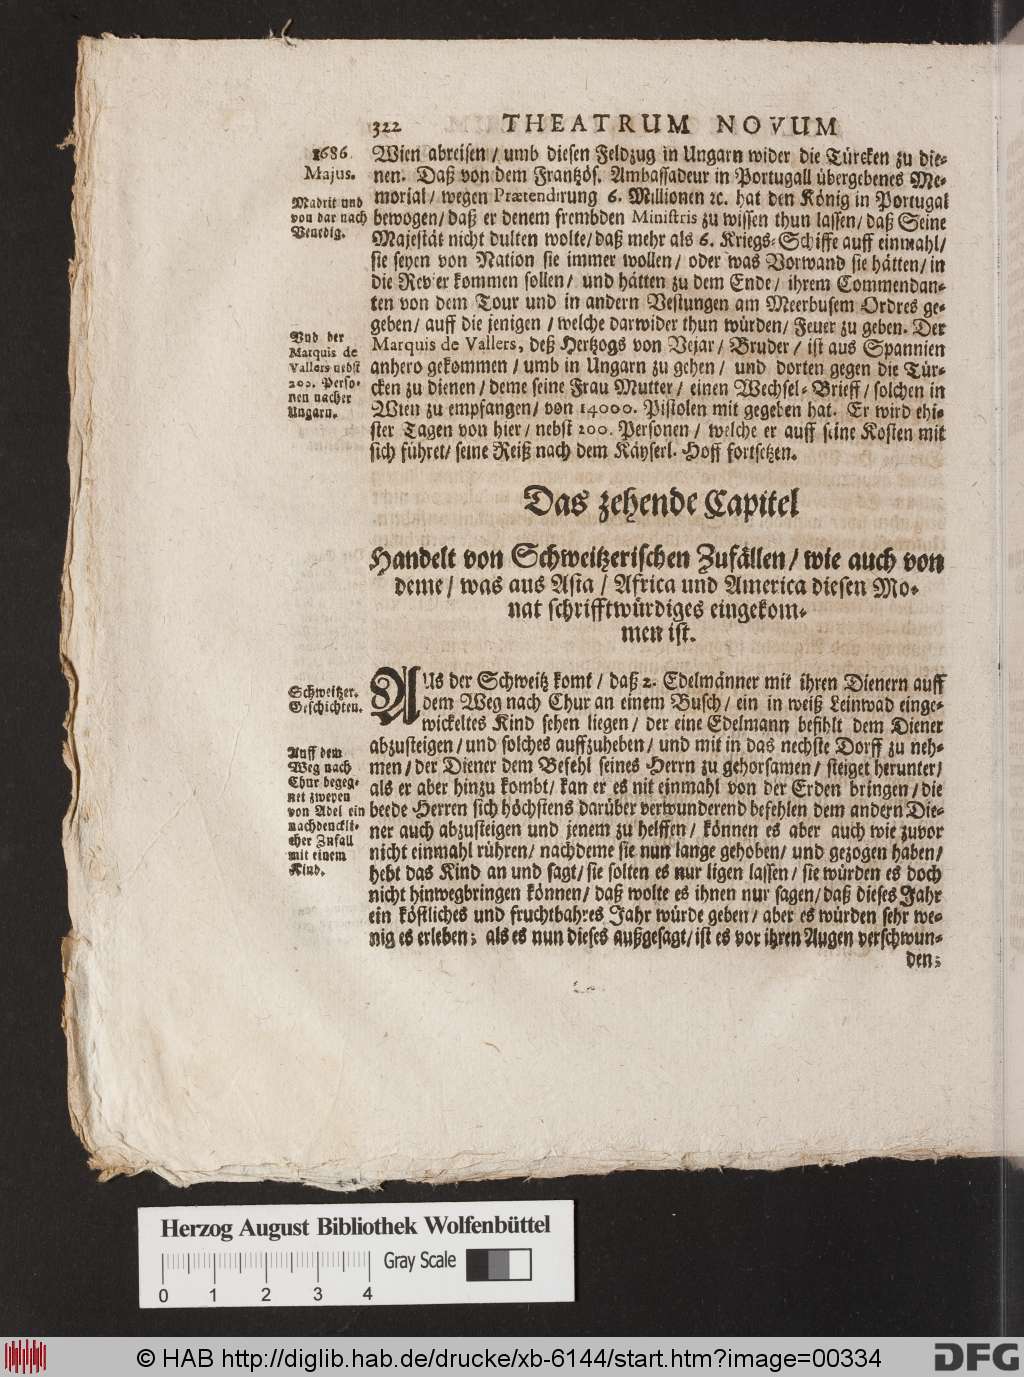 322 THEATRUM NOVUM
1686.
Majus.
Madrit und
von dar nach
Venedig.
Wien abreisen / umb diesen Feldzug in Ungarn wider die Türcken zu die-
nen. Daß von dem Frantzös. Ambassadeur in Portugall übergebenes Me-
morial / wegen Prætendirung 6. Millionen ꝛc. hat den König in Portugal
bewogen / daß er denem frembden Ministris zu wissen thun lassen / daß Seine
Majestät nicht dulten wolte / daß mehr als 6. Kriegs-Schiffe auff einmahl /
sie seyen von Nation sie immer wollen / oder was Vorwand sie hätten / in
die Revier kommen sollen / und hätten zu dem Ende / ihrem Commendan-
ten von dem Tour und in andern Vestungen am Meerbusem Ordres ge-
geben / auff die jenigen / welche darwider thun würden / Feuer zu geben. Der
Und der
Marquis de
Vallers nebst
200. Perso-
nen nacher
Ungarn.
Marquis de Vallers, deß Hertzogs von Vejar / Bruder / ist aus Spannien
anhero gekommen / umb in Ungarn zu gehen / und dorten gegen die Tür-
cken zu dienen / deme seine Frau Mutter / einen Wechsel-Brieff / solchen in
Wien zu empfangen / von 14000. Pistolen mit gegeben hat. Er wird ehi-
ster Tagen von hier / nebst 200. Personen / welche er auff seine Kosten mit
sich führet / seine Reiß nach dem Käyserl. Hoff fortsetzen.
Das zehende Capitel
Handelt von Schweitzerischen Zufällen / wie auch von
deme / was aus Asia / Africa und America diesen Mo-
nat schrifftwürdiges eingekom-
men ist.
Schweitzer.
Geschichten.
Auff dem
Weg nach
Chur begeg-
net zweyen
von Adel ein
nachdenckli-
cher Zufall
mit einem
Kind.
AUs der Schweitz komt / daß 2. Edelmänner mit ihren Dienern auff
dem Weg nach Chur an einem Busch / ein in weiß Leinwad einge-
wickeltes Kind sehen liegen / der eine Edelmann befihlt dem Diener
abzusteigen / und solches auffzuheben / und mit in das nechste Dorff zu neh-
men / der Diener dem Befehl seines Herrn zu gehorsamen / steiget herunter /
als er aber hinzu kombt / kan er es nit einmahl von der Erden bringen / die
beede Herren sich höchstens darüber verwunderend befehlen dem andern Die-
ner auch abzusteigen und jenem zu helffen / können es aber auch wie zuvor
nicht einmahl rühren / nachdeme sie nun lange gehoben / und gezogen haben /
hebt das Kind an und sagt / sie solten es nur ligen lassen / sie würden es doch
nicht hinwegbringen können / daß wolte es ihnen nur sagen / daß dieses Jahr
ein köstliches und fruchtbahres Jahr würde geben / aber es würden sehr we-
nig es erleben; als es nun dieses außgesagt / ist es vor ihren Augen verschwun-
den;
Herzog August Bibliothek Wolfenbüttel
Gray Scale
0 1 2 3 4
© HAB http://diglib.hab.de/drucke/xb-6144/start.htm?image=00334
DFG